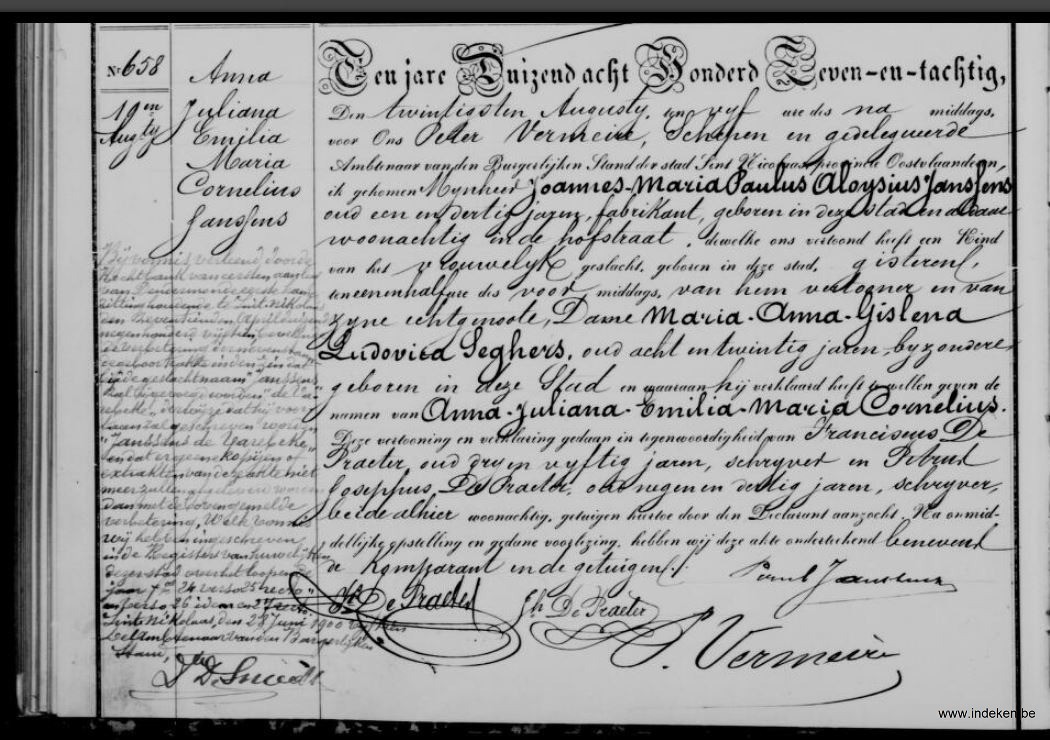 Nr 658
Anna
Juliana
Emilia
Maria
Cornelius
Janssens
19en
Augty
Ten jare Duizend acht Honderd Zeven-en-tachtig,
Den twintigsten Augusty, ten vyf ure des na middags,
voor Ons Peter Vermeire, Schepen en gedelegeerde
Ambtenaar van den Burgerlijken Stand der stad Sint Nicolaas, provincie Oostvlaanderen,
is gekomen Mynheer Joannes-Maria Paulus Aloysius Janssens
oud een en dertig jaren, fabrikant, geboren in deze stad en aldaar
woonachtig in de hofstraat, dewelke ons vertoond heeft een Kind
van het vrouwelyk geslacht, geboren in deze stad, gisteren,
ten eenenhalf ure des voor middags, van hem vertooner en van
zyne echtgenoote, Dame Maria-Anna-Gislena
Ludovica Seghers, oud acht en twintig jaren, byzondere
geboren in deze Stad en waaraan hij verklaard heeft te willen geven de
namen van Anna-Juliana-Emilia-Maria Cornelius.
Deze vertooning en verklaring gedaan in tegenwoordigheid van Franciscus De
Praeter, oud dry en vyftig jaren, schryver en Petrus
Josephus De Praeter, oud negen en dertig jaren, schryver,
beide alhier woonachtig, getuigen hiertoe door den Declarant aanzocht. Na onmid-
dellijke opstelling en gedane voorlezing, hebben wij deze akte onderteekend benevens
de Komparant en de getuigen.
Bij vonnis verleend door de
Rechtbank van eersten aanleg
van Dendermonde eerste kamer
zitting houdende te Sint-Nikolaas
den zeventienden April
negenhonderd
de verbetering
geslachtnaam "Janssens"
"Janssens de Varebeke"
en dat er geene kopijen of
extrakten van deze akte niet
meer zullen afgeleverd worden
dan met de bovengemelde
verbetering. Welk vonnis
wij hebben ingeschreven
in de Registers van huwelijken
dezer stad over het loopende
jaar
Sint-Nikolaas, den 28 Juni 1900
De Ambtenaar van den Burgerlijken
Stand,
De Smedt
Paul Janssens
Fr De Praeter
Jh De Praeter
P. Vermeire
www.indeken.be